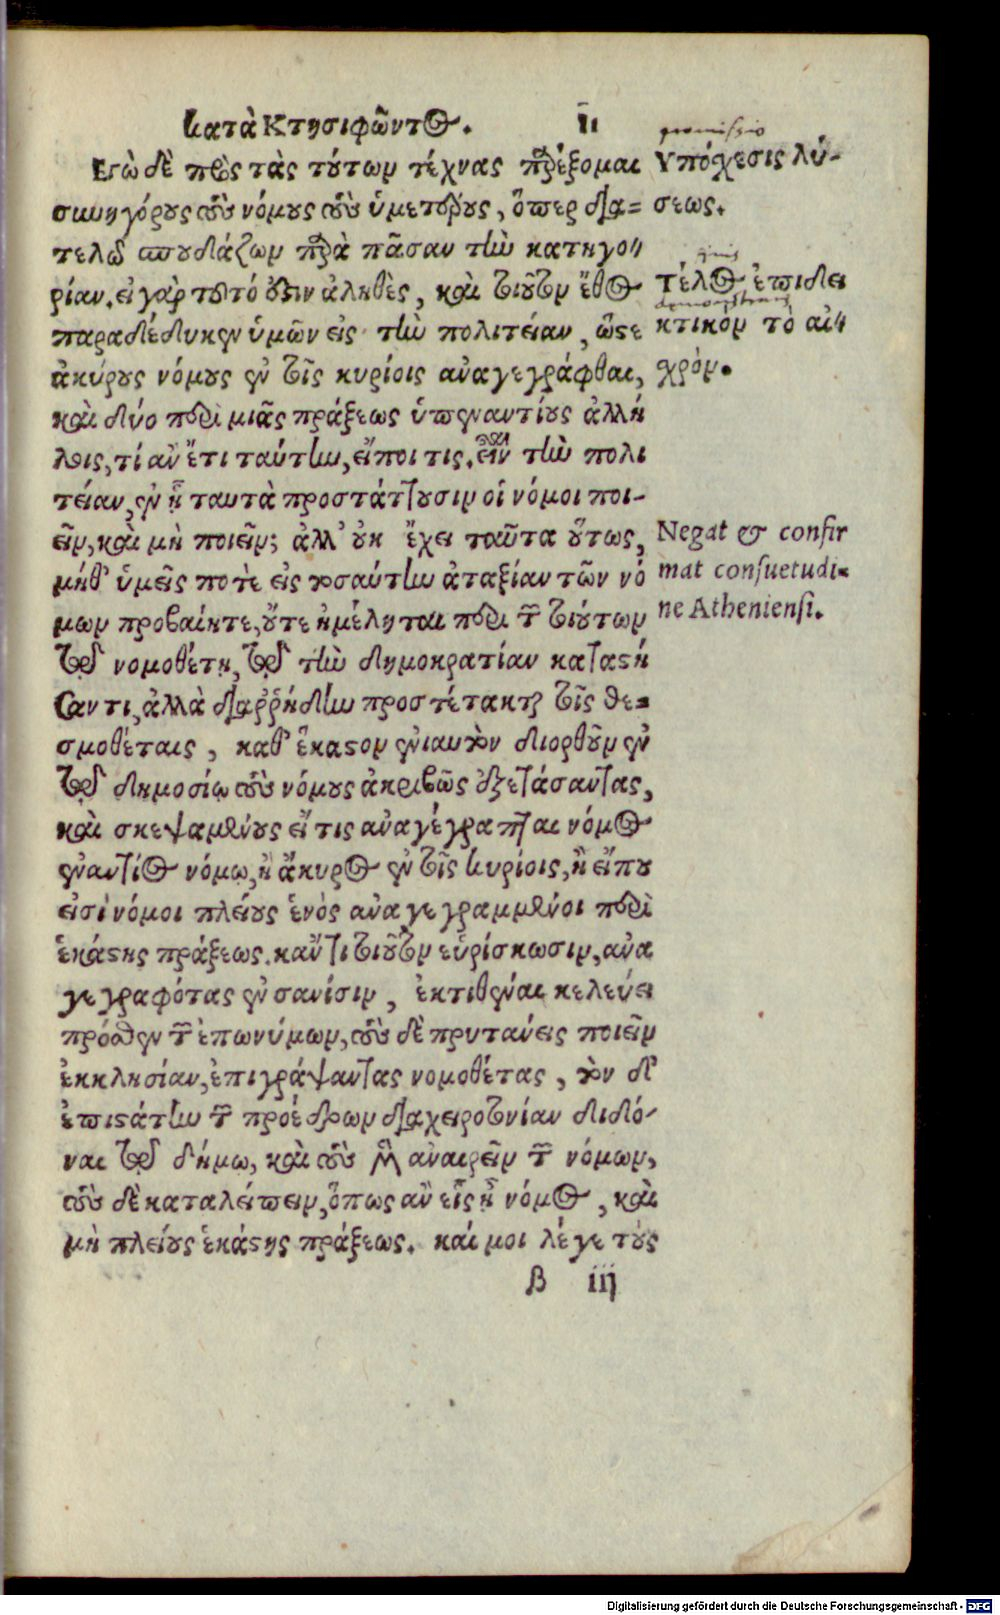 κατὰ Κτησιφῶντος. 11
promissio
Εγὼ δὲ πρὸς τὰς τούτων τέχνας παρέξομαι Υπόσχεσις λύ-
συνηγόρους τοὺς νόμους τοὺς ὑμετέρους, ὅπερ δια= σεως.
τελῶ σπουδάζων παρὰ πᾶσαν τὴν κατηγο//
ρίαν. εἰ γὰρ τοῦτό ἐστιν ἀληθὲς, καὶ τοιοῦτον ἔθος Τέλος ἐπιδει
παραδέδυκεν ὑμῶν εἰς τὴν πολιτείαν, ὥστε κτικὸν τὸ αἰ//
ἀκύρους νόμους ἐν τοῖς κυρίοις ἀναγεγράφθαι, χρόν.
καὶ δύο περὶ μιᾶς πράξεως ὑπεναντίους ἀλλή
λοις, τί ἂν ἔτι ταύτην, εἴποι τις, εἶναι τὴν πολι
τείαν, ἐν ᾗ ταυτὰ προστάττουσιν οἱ νόμοι ποι-
εῖν, καὶ μὴ ποιεῖν; ἀλλ' οὐκ ἔχει ταῦτα οὕτως, Negat & confir
μήθ' ὑμεῖς ποτὲ εἰς τοσαύτην ἀταξίαν τῶν νό mat consuetudi=
μων προβαίητε, οὔτε ἠμέληται περὶ τῶν τοιούτων ne Atheniensi.
τῷ νομοθέτῃ, τῷ τὴν δημοκρατίαν καταστή
σαντι, ἀλλὰ διαῤῥήδην προστέτακται τοῖς θε=
σμοθέταις, καθ' ἕκαστον ἐνιαυτὸν διορθοῦν ἐν
τῷ δημοσίῳ τοὺς νόμους ἀκριβῶς ἐξετάσαντας,
καὶ σκεψαμένους εἴ τις ἀναγέγραπται νόμος
ἐναντίος νόμῳ, ἢ ἄκυρος ἐν τοῖς κυρίοις, ἢ εἴ που
εἰσὶ νόμοι πλείους ἑνὸς ἀναγεγραμμένοι περὶ
ἑκάστης πράξεως. κἄν τι τοιοῦτον εὑρίσκωσιν, ἀνα
γεγραφότας ἐν σανίσιν, ἐκτιθέναι κελεύει
πρόσθεν τῶν ἐπωνύμων, τοὺς δὲ πρυτάνεις ποιεῖν
ἐκκλησίαν, ἐπιγράψαντας νομοθέτας, τὸν δ'
ἐπιστάτην τῶν προέδρων διαχειροτονίαν διδό-
ναι τῷ δήμῳ, καὶ τοὺς μὲν ἀναιρεῖν τῶν νόμων,
τοὺς δὲ καταλείπειν, ὅπως ἂν εἷς ᾖ νόμος, καὶ
μὴ πλείους ἑκάστης πράξεως. καί μοι λέγε τοὺς
β iij
Digitalisierung gefördert durch die Deutsche Forschungsgemeinschaft - DFG